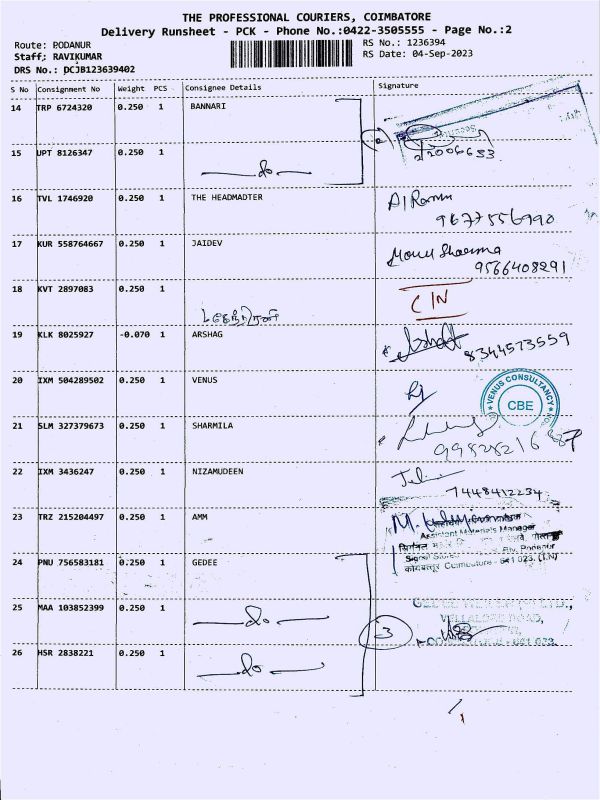 THE PROFESSIONAL COURIERS, COIMBATORE
Delivery Runsheet - PCK - Phone No.:0422-3505555 - Page No.:2
Route: PODANUR
RS No.: 1236394
Staff: RAVIKUMAR
RS Date: 04-Sep-2023
DRS No.: DCJB123639402
S No Consignment No Weight PCS Consignee Details Signature
14 TRP 6724320 0.250 1 BANNARI
15 UPT 8126347 0.250 1
do
16 TVL 1746920 0.250 1 THE HEADMADTER
9677556990
17 KUR 558764667 0.250 1 JAIDEV
Sharma
9566408291
18 KVT 2897083 0.250 1
19 KLK 8025927 -0.070 1 ARSHAG
8344573559
20 IXM 504289502 0.250 1 VENUS
VENUS CONSULTANCY
CBE
21 SLM 327379673 0.250 1 SHARMILA
22 IXM 3436247 0.250 1 NIZAMUDEEN
7448412234
23 TRZ 215204497 0.250 1 AMM
M.
Assistant Materials Manager
Podanur
Coimbatore - 641 023. (T.N)
24 PNU 756583181 0.250 1 GEDEE
25 MAA 103852399 0.250 1
do
3
26 HSR 2838221 0.250 1
do